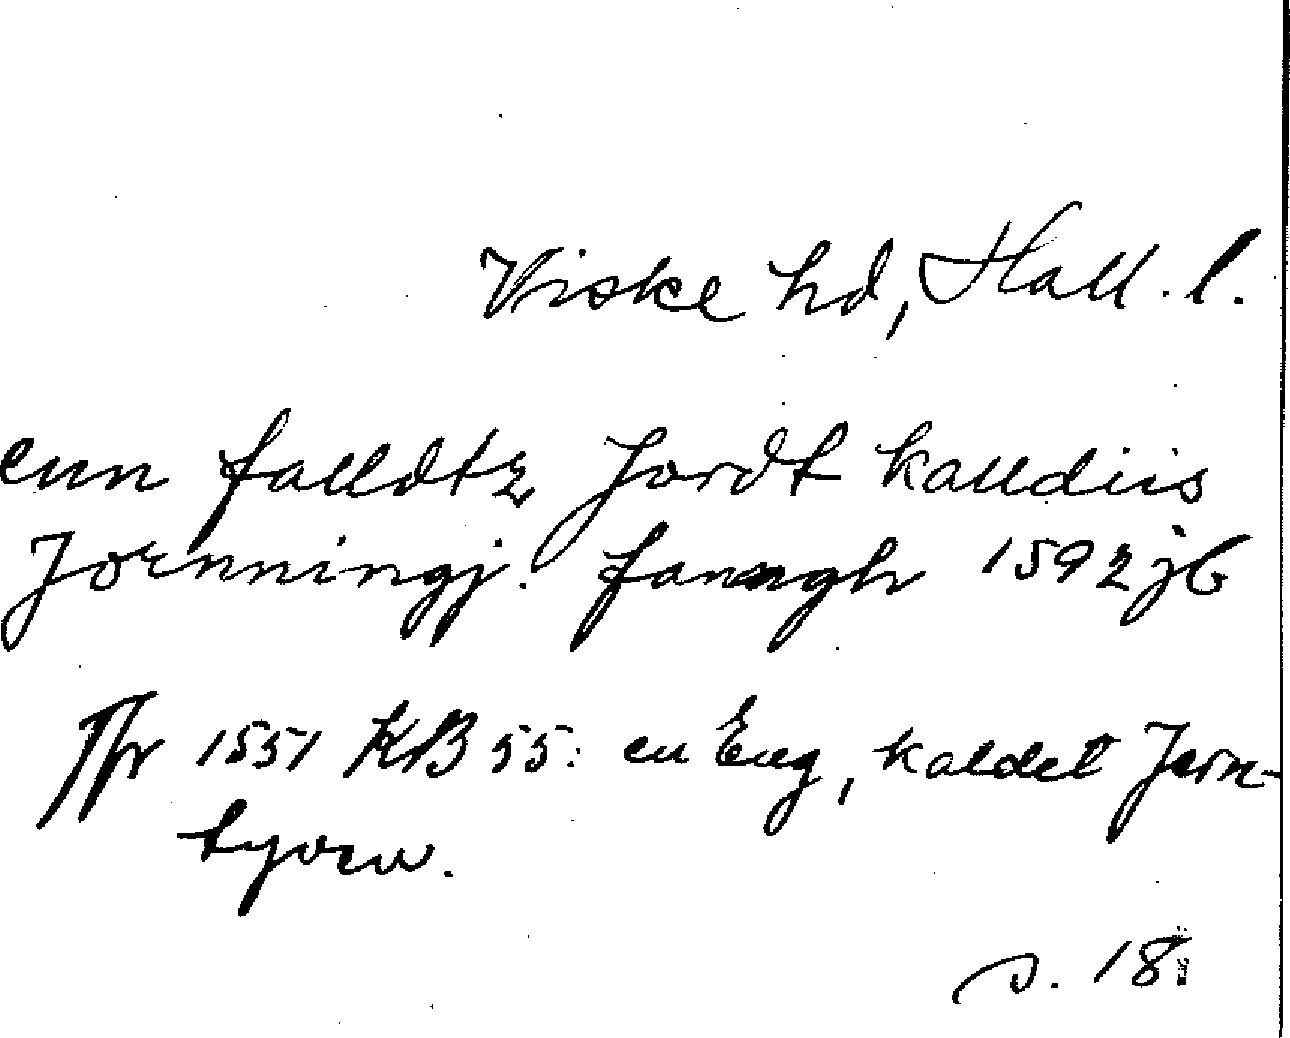 Viske hd, Hall. l.
enn falldtz Jordt kalldiis
Jornningj. fanngh 1592 jb
Jfr 1551 KB 55: en Eng, kaldet Jorn-
tyorn.
s. 18